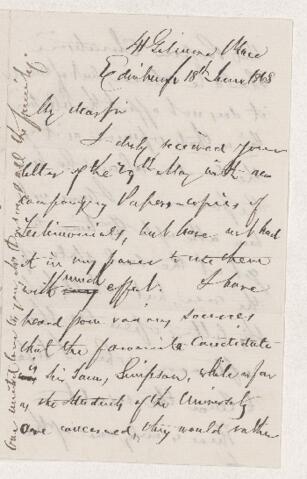 4 Gilmore Place
Edinburgh 18th June 1868
My dear Sir
I duly received your
letter of the 29th May with ac
companying Papers - copies of
Testimonials, but have not had
it in my power to use them
with much effect. I have
heard from various sources
that the favourite Candidate
is Sir James Simpson, while as far
as the Students of the University
are concerned, they would rather
united love to your brother and all the family.